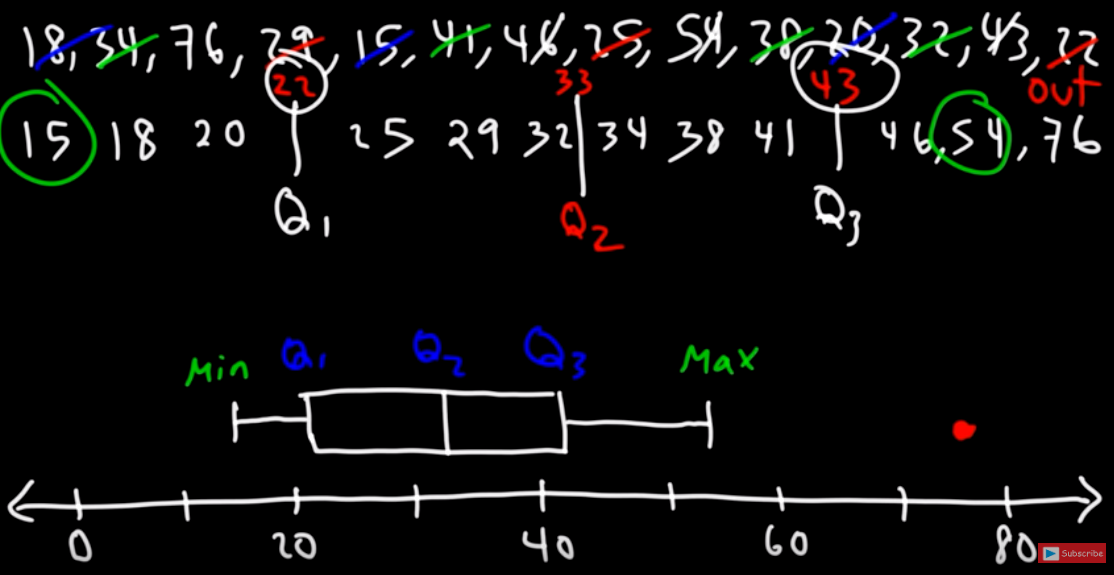 18, 34, 76, 29, 15, 41, 46, 25, 54, 38, 20, 32, 43, 22
22 33 43 out
15 18 20 25 29 32 34 38 41 46, 54, 76
Q1 Q2 Q3
Min Q1 Q2 Q3 Max
0 20 40 60 80
Subscribe